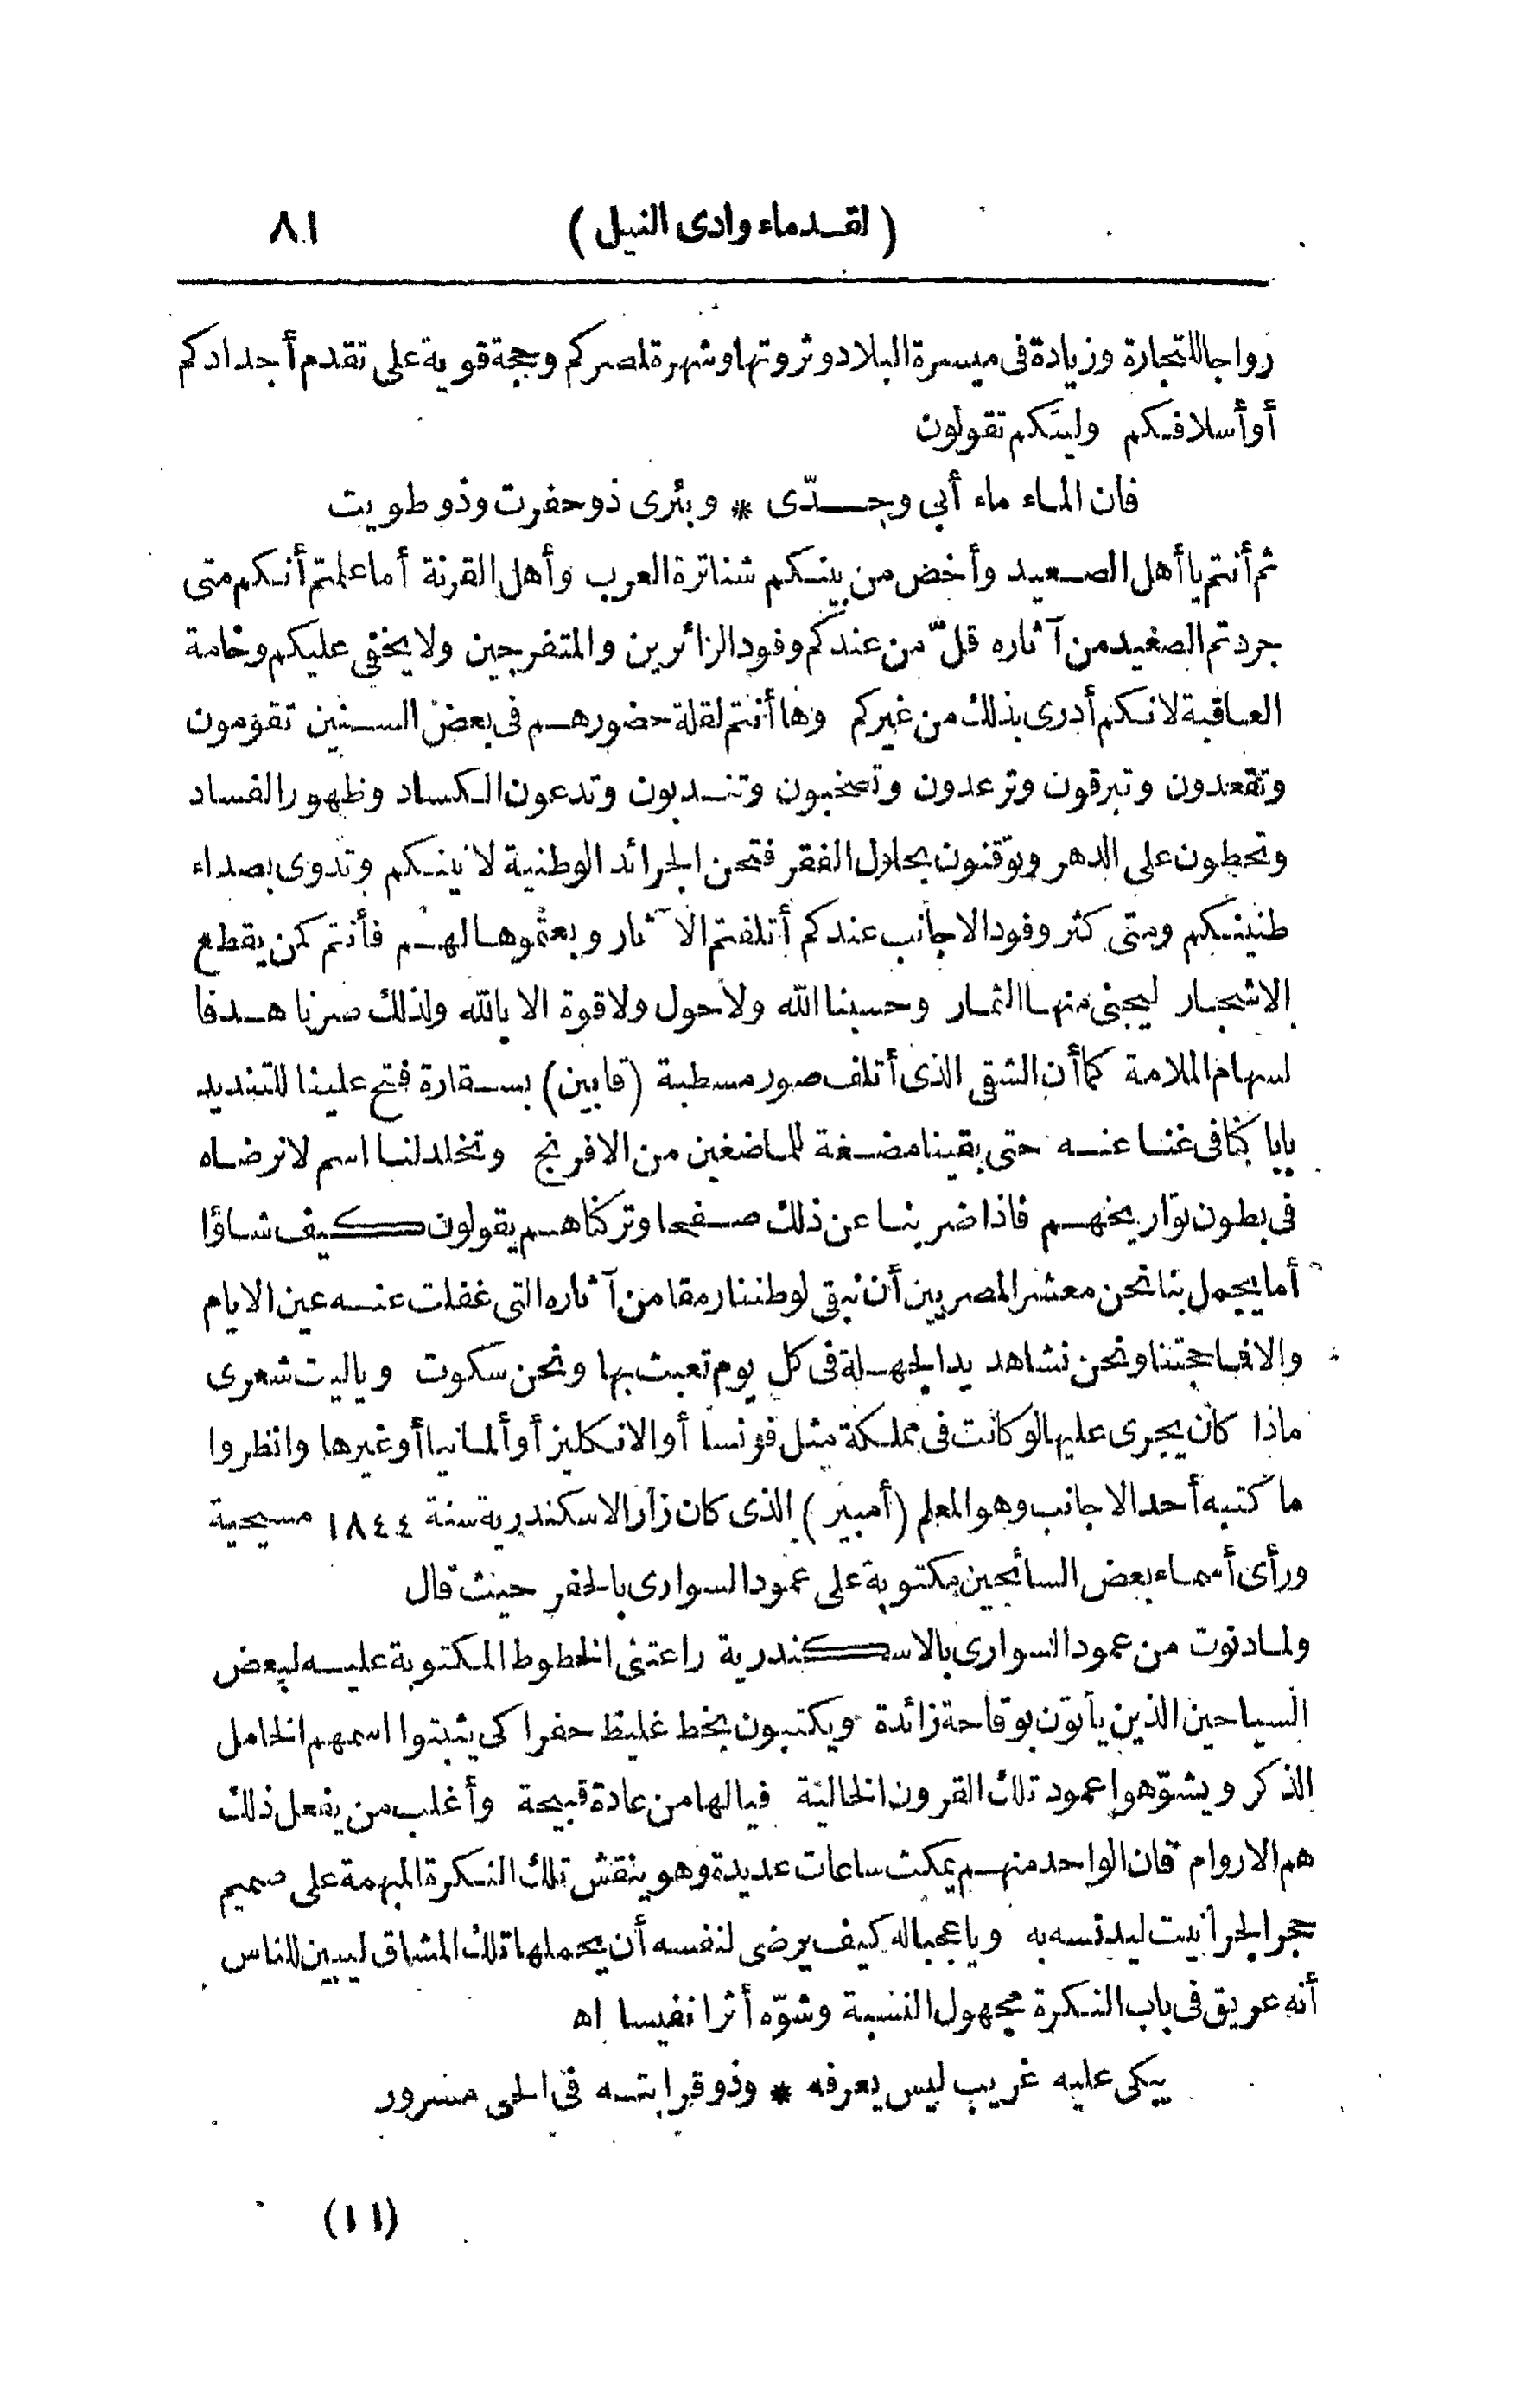 (لقدماء وادى النيل) ٨١
رواجا للتجارة وزيادة فى ميسرة البلاد وثروتها وشهرة لمصركم وحجة قوية على تقدم أجدادكم
أو أسلافكم وليتكم تقولون
فان الماء ماء أبى وجدّى * وبئرى ذو حفرت وذو طويت
ثم أنتم يا أهل الصعيد وأخص من بينكم شناترة العرب وأهل القرنة أما علمتم أنكم متى
جردتم الصعيد من آثاره قلّ من عندكم وفود الزائرين والمتفرجين ولا يخفى عليكم وخامة
العاقبة لانكم أدرى بذلك من غيركم وها أنتم لقلة حضورهم فى بعض السنين تقومون
وتقعدون وتبرقون وترعدون وتصخبون وتندبون وتدعون الكساد وظهور الفساد
وتحطون على الدهر وتوقنون بحلال الفقر فتحن الجرائد الوطنية لانينكم وتدوى بصداء
طنينكم ومتى كثر وفود الاجانب عندكم أتلفتم الآثار وبعتموها لهم فأنتم كمن يقطع
الاشجار ليجنى منها الثمار وحسبنا الله ولا حول ولا قوة الا بالله ولذلك صرنا هدفا
لسهام الملامة كما أن الشقى الذى أتلف صور مسطبة (قابين) بسقارة فتح علينا للتنديد
بابا كنا فى غنا عنه حتى بقينا مضغة للماضغين من الافرنج وتخلد لنا اسم لانرضاه
فى بطون تواريخهم فاذا ضربنا عن ذلك صفحا وتركناهم يقولون كيف شاؤا
أما يجمل بنا نحن معشر المصريين أن نبقى لوطننا رمقا من آثاره التى غفلت عنه عين الايام
والا فما حجتنا ونحن نشاهد يد الجهلة فى كل يوم تعبث بها ونحن سكوت وياليت شعرى
ماذا كان يجرى عليها لو كانت فى مملكة مثل فرنسا أو الانكليز أو ألمانيا أو غيرها وانظروا
ما كتبه أحد الاجانب وهو المعلم (أمبير) الذى كان زار الاسكندرية سنة ١٨٤٤ مسيحية
ورأى أسماء بعض السائحين مكتوبة على عمود السوارى بالحفر حيث قال
ولما دنوت من عمود السوارى بالاسكندرية راعتنى الخطوط المكتوبة عليه لبعض
السياحين الذين يأتون بوقاحة زائدة ويكتبون بخط غليظ حفرا كى يثبتوا اسمهم الخامل
الذكر ويشوّهوا عمود تلك القرون الخالية فيالها من عادة قبيحة وأغلب من يفعل ذلك
هم الاروام فان الواحد منهم يمكث ساعات عديدة وهو ينقش تلك النكرة المبهمة على صميم
حجر الجرانيت ليدنسه به وياعجبا له كيف يرضى لنفسه أن يحملها تلك المشاق ليبين للناس
أنه عريق فى باب النكرة مجهول النسبة وشوّه أثرا نفيسا اه
يبكى عليه غريب ليس يعرفه * وذو قرابته فى الحى مسرور
(١١)